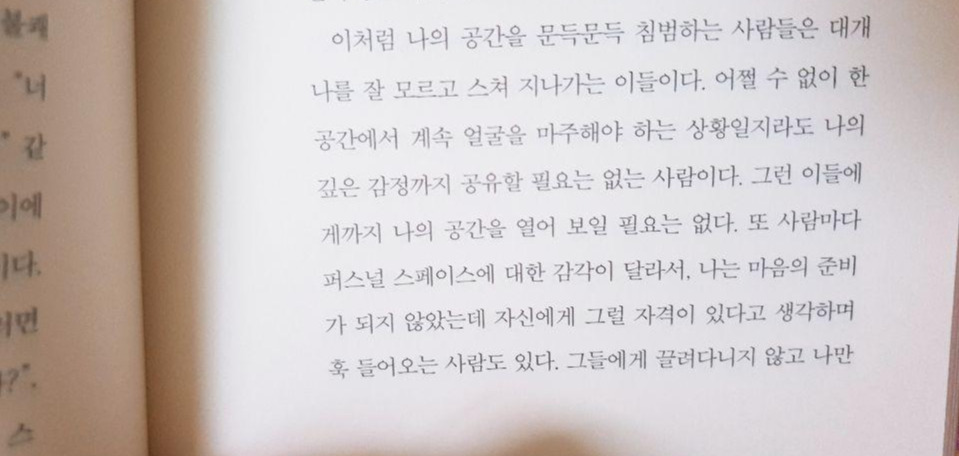 불쾌
"너
" 같
이에
이다.
이면
?".
스
이처럼 나의 공간을 문득문득 침범하는 사람들은 대개
나를 잘 모르고 스쳐 지나가는 이들이다. 어쩔 수 없이 한
공간에서 계속 얼굴을 마주해야 하는 상황일지라도 나의
깊은 감정까지 공유할 필요는 없는 사람이다. 그런 이들에
게까지 나의 공간을 열어 보일 필요는 없다. 또 사람마다
퍼스널 스페이스에 대한 감각이 달라서, 나는 마음의 준비
가 되지 않았는데 자신에게 그럴 자격이 있다고 생각하며
훅 들어오는 사람도 있다. 그들에게 끌려다니지 않고 나만